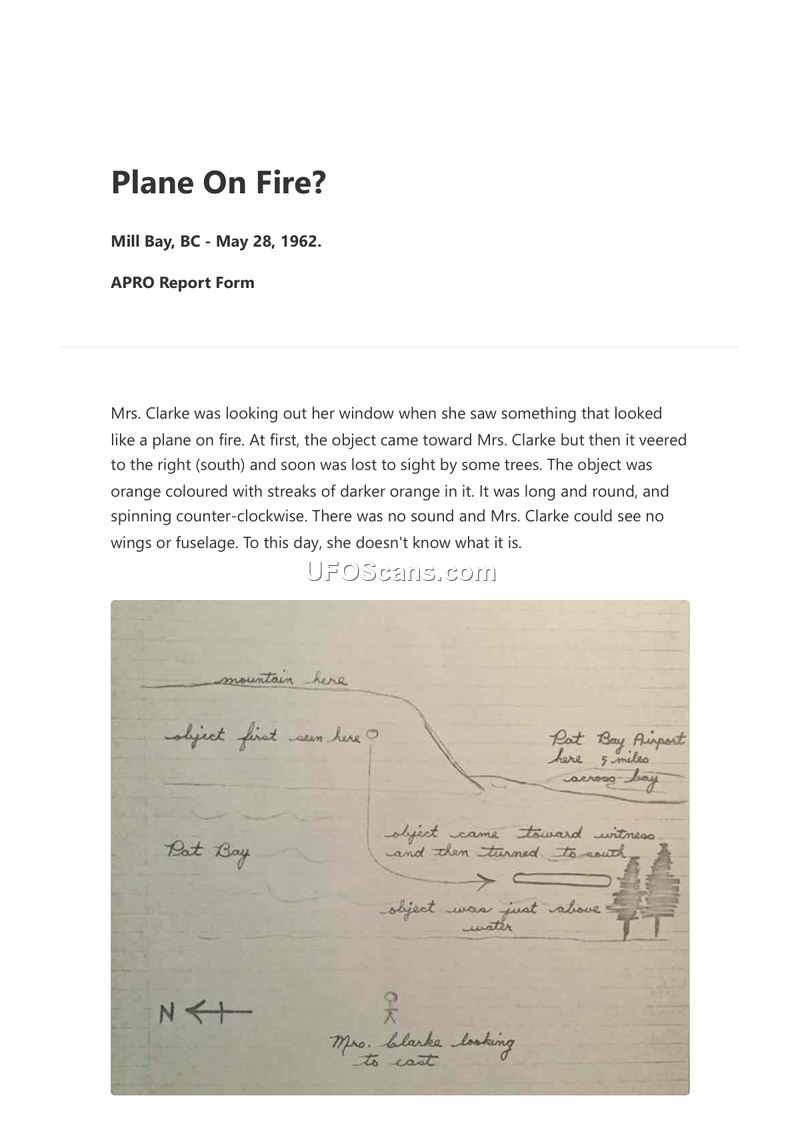 Plane On Fire?
Mill Bay, BC - May 28, 1962.
APRO Report Form
Mrs. Clarke was looking out her window when she saw something that looked
like a plane on fire. At first, the object came toward Mrs. Clarke but then it veered
to the right (south) and soon was lost to sight by some trees. The object was
orange coloured with streaks of darker orange in it. It was long and round, and
spinning counter-clockwise. There was no sound and Mrs. Clarke could see no
wings or fuselage. To this day, she doesn't know what it is.
UFOScans.com
mountain here
object first seen here
Pat Bay Airport
here 5 miles
across bay
object came toward witness
and then turned to south
Pat Bay
object was just above
water
N
Mrs. Clarke looking
to east